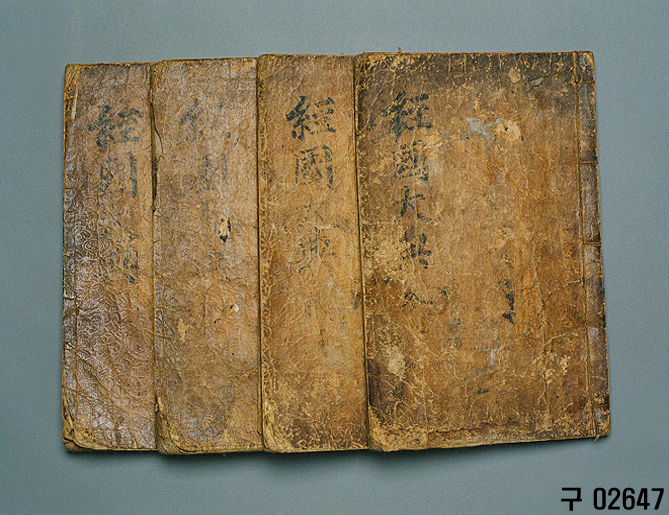 經國大典
經國大典
經國
經國大典
구 02647